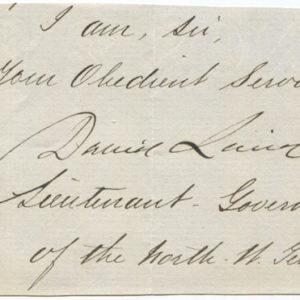 I am, sir,
Your Obedient Serv
David Laird
Lieutenant-Govern
of the North-W. Te